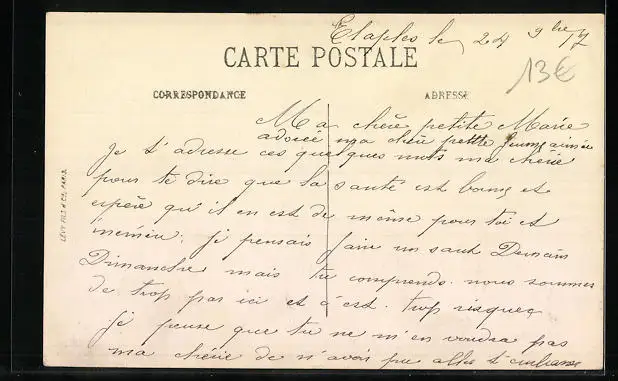 Etaples le 24 9bre 17
CARTE POSTALE
13€
CORRESPONDANCE
ADRESSE
Ma chère petite Marie
adorée ma chère petite femme aimée
Je t'adresse ces quelques mots ma chérie
pour te dire que la santé est bonne et
espère qu'il en est de même pour toi et
je pensais faire un saut Demain
Dimanche mais tu comprends nous sommes
de trop par ici et c'est trop risquer
je pense que tu ne m'en voudra pas
ma chérie de n'avoir pu aller t'embrasser
LEVY FILS & Cie, PARIS